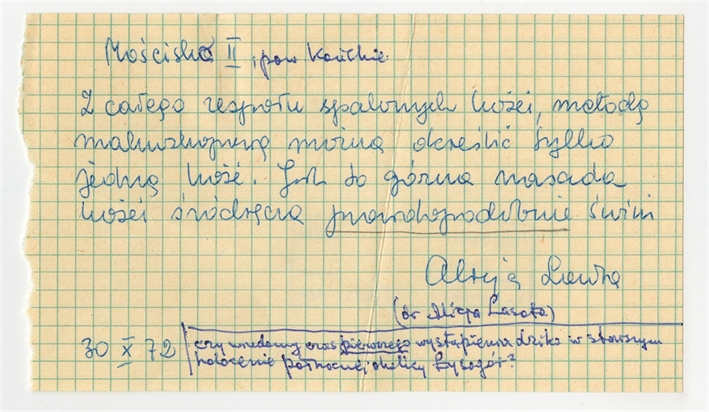 Mościska II, pow Końskie
Z całego zespołu spalonych kości, metodą
makroskopową można określić tylko
jedną kość. Jest to górna nasada
kości śródręcza prawdopodobnie świni
Alicja Lasota
(dr Alicja Lasota)
30 X 72
czy wiadomy czas pierwszego wystąpienia dzika w starszym
holocenie północnej okolicy Łysogór?